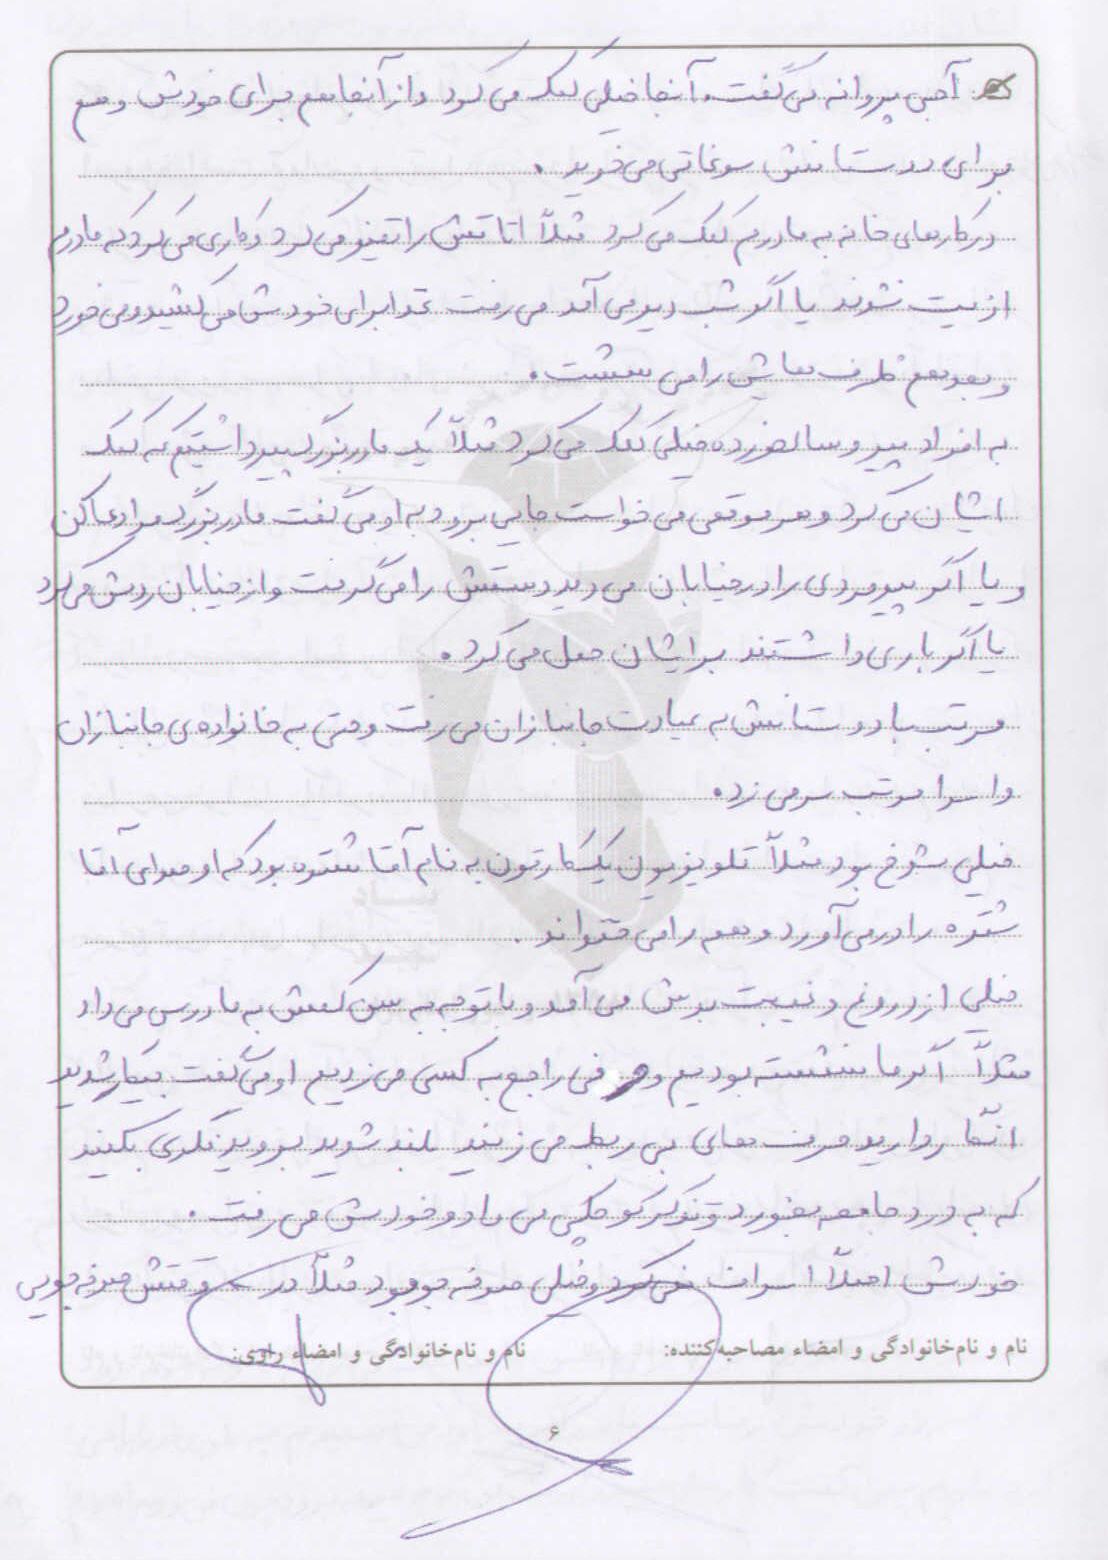 آجی پروانه می گفت، آنجا خیلی کمک می کرد و از آنجا هم برای خودش و هم
برای دوستانش سوغاتی می خرید.
در کارهای خانه به مادرم کمک می کرد مثلاً اتاقش را تمیز می کرد و کاری می کرد که مادرم
اذیت نشوند یا اگر شب دیر می آمد می رفت غذا برای خودش می کشید و می خورد
و بعد هم ظرف هایش را می شست.
به افراد پیر و سالخورده خیلی کمک می کرد مثلاً یک مادربزرگ پیر داشتیم که کمک
ایشان می کرد و هر موقعی می خواست جایی برود به او می گفت مادربزرگ مرا دعا کن
و یا اگر پیرمردی را در خیابان می دید دستش را می گرفت و از خیابان ردش می کرد
یا اگر باری داشتند برایشان حمل می کرد.
مرتب با دوستانش به عیادت جانبازان می رفت و حتی به خانواده ی جانبازان
و اسرا مرتب سر می زد.
خیلی شوخ بود مثلاً تلویزیون یک کارتون به نام آقا شتره بود که او صدای آقا
شتره را در می آورد و همه را می خنداند.
خیلی از دروغ و غیبت بدش می آمد و با توجه به سن کمش به ما درس می داد
مثلاً اگر ما نشسته بودیم و حرفی راجع به کسی می زدیم او می گفت بیکار شدید
آنقدر دارید حرف های بی ربط می زنید بلند شوید بروید فکری بکنید
که به درد جامعه بخورد و تذکر کوچکی می داد و خودش می رفت.
خودش اصلاً اسراف نمی کرد و خیلی صرفه جو بود مثلاً در وقتش صرفه جویی
نام و نام خانوادگی و امضاء مصاحبه کننده: نام و نام خانوادگی و امضاء راوی:
۶